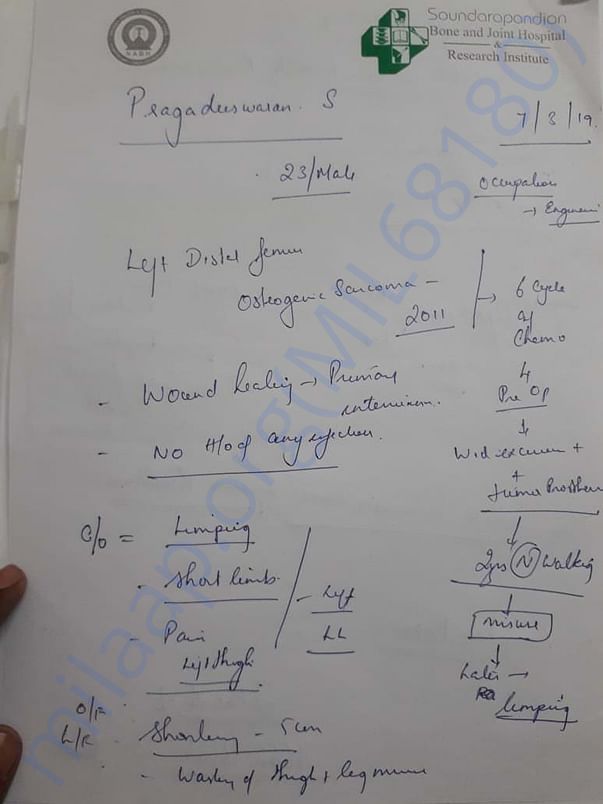 NABH
Soundarapandian
Bone and Joint Hospital
&
Research Institute
Pragadeeswaran. S
7/3/19.
23/Male
Occupation
→ Engineer
Left Distal femur
Osteogenic Sarcoma -
2011
→ 6 Cycle
of
Chemo
4
Pre Op
- Wound healing → Primary
- No H/o of any infection.
Wid excision +
+
2yrs (N) walking
misuse
Later →
limping
C/o = Limping
- Short limb.
- Pain
Left thigh
- Left
LL
O/E
Shortening - 5cm
- Wasting of thigh + leg muscle
milaap.org(MIL68180)